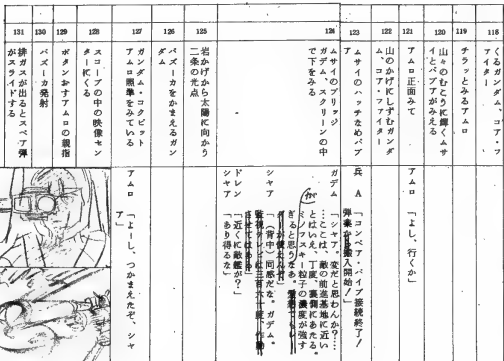 118
くるガンダム、コア・フ
ァイター
119
チラッとみるアムロ
120
山々のむこうに輝くムサ
イと、パプアがみえる
121
アムロ正面みて
アムロ「よし、行くか」
122
山のかげにしずむガンダ
ム、コア・ファイター
123
ムサイのハッチなめパプ
ア
兵 A「コンベア・パイプ接続終了!
搬入開始!」
124
ムサイのブリッジ
ガデム、スクリーンの中
で下をみる
ガデム「シャア。変だと思わんか?…
…ここは、敵の前進基地に近い
とはいえ、丁度、裏側にあたる。
ミノフスキー粒子の濃度が強す
ぎると思うなあ。
シャア「(背中)同感だな。ガデム。
監視テレビは三百六十度、作動
させてはある
ドレン「近くに敵艦が?」
シャア「あり得るな」
125
岩かげから太陽に向かう
二条の光点
126
バズーカをかまえるガン
ダム
127
ガンダム・コクピット
アムロ照準をみている
アムロ「よーし、つかまえたぞ、シャ
ア」
128
スコープの中の映像セン
ターにくる
129
ボタンおすアムロの親指
130
バズーカ発射
131
排ガスが出るとスペア弾
がスライドする